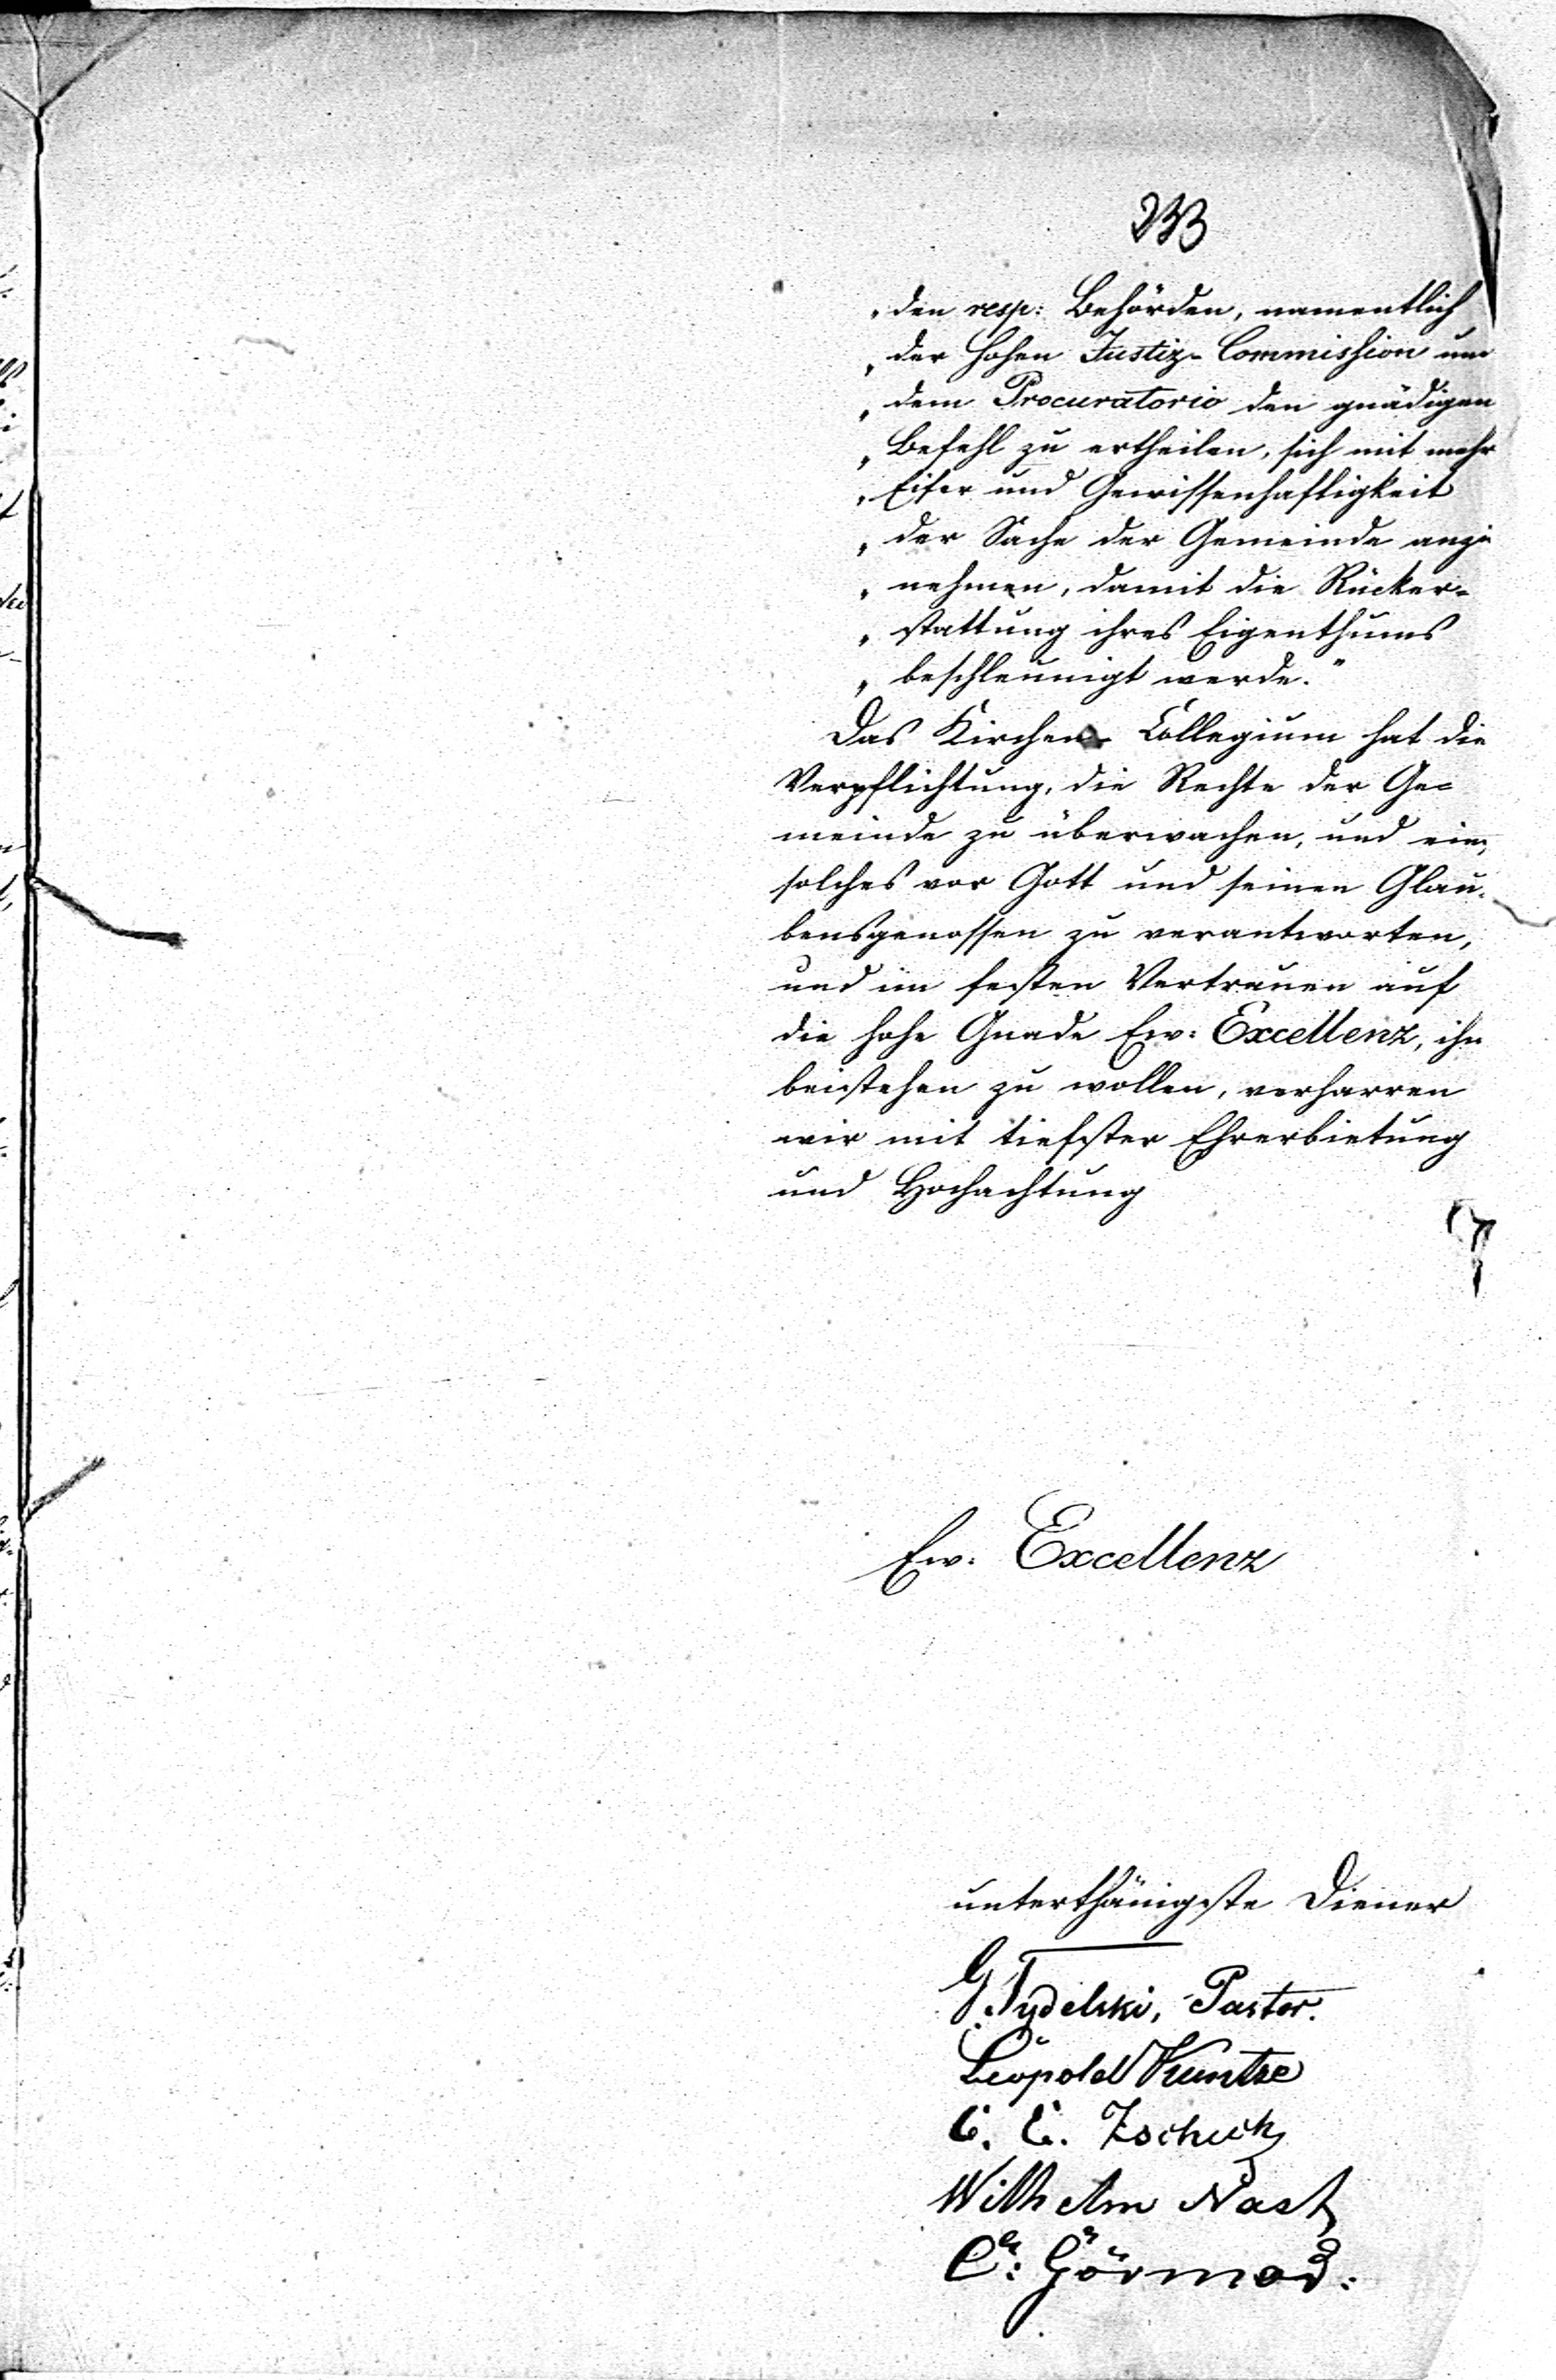 233
„den resp: Behörden, namentlich
„der hohen Justiz-Commission und
„dem Procuratorio den gnädigen
„Befehl zu ertheilen, sich mit mehr
„Eifer und Gewissenhaftigkeit
„der Sache der Gemeinde anzu
„nehmen, damit die Rücker-
„stattung ihres Eigenthums
„beschleunigt werde."
Das Kirchen-Collegium hat die
Verpflichtung, die Rechte der Ge-
meinde zu überwachen, und ein
solches vor Gott und seinen Glau-
bensgenossen zu verantworten,
und im festen Vertrauen auf
die hohe Gnade Ew: Excellenz, ihn
beistehen zu wollen, verharren
wir mit tiefster Ehrerbietung
und Hochachtung
Ew: Excellenz
unterthänigste Diener
G. Tydelski, Pastor.
Leopold Kuntze
C. E.
Wilhelm Nast